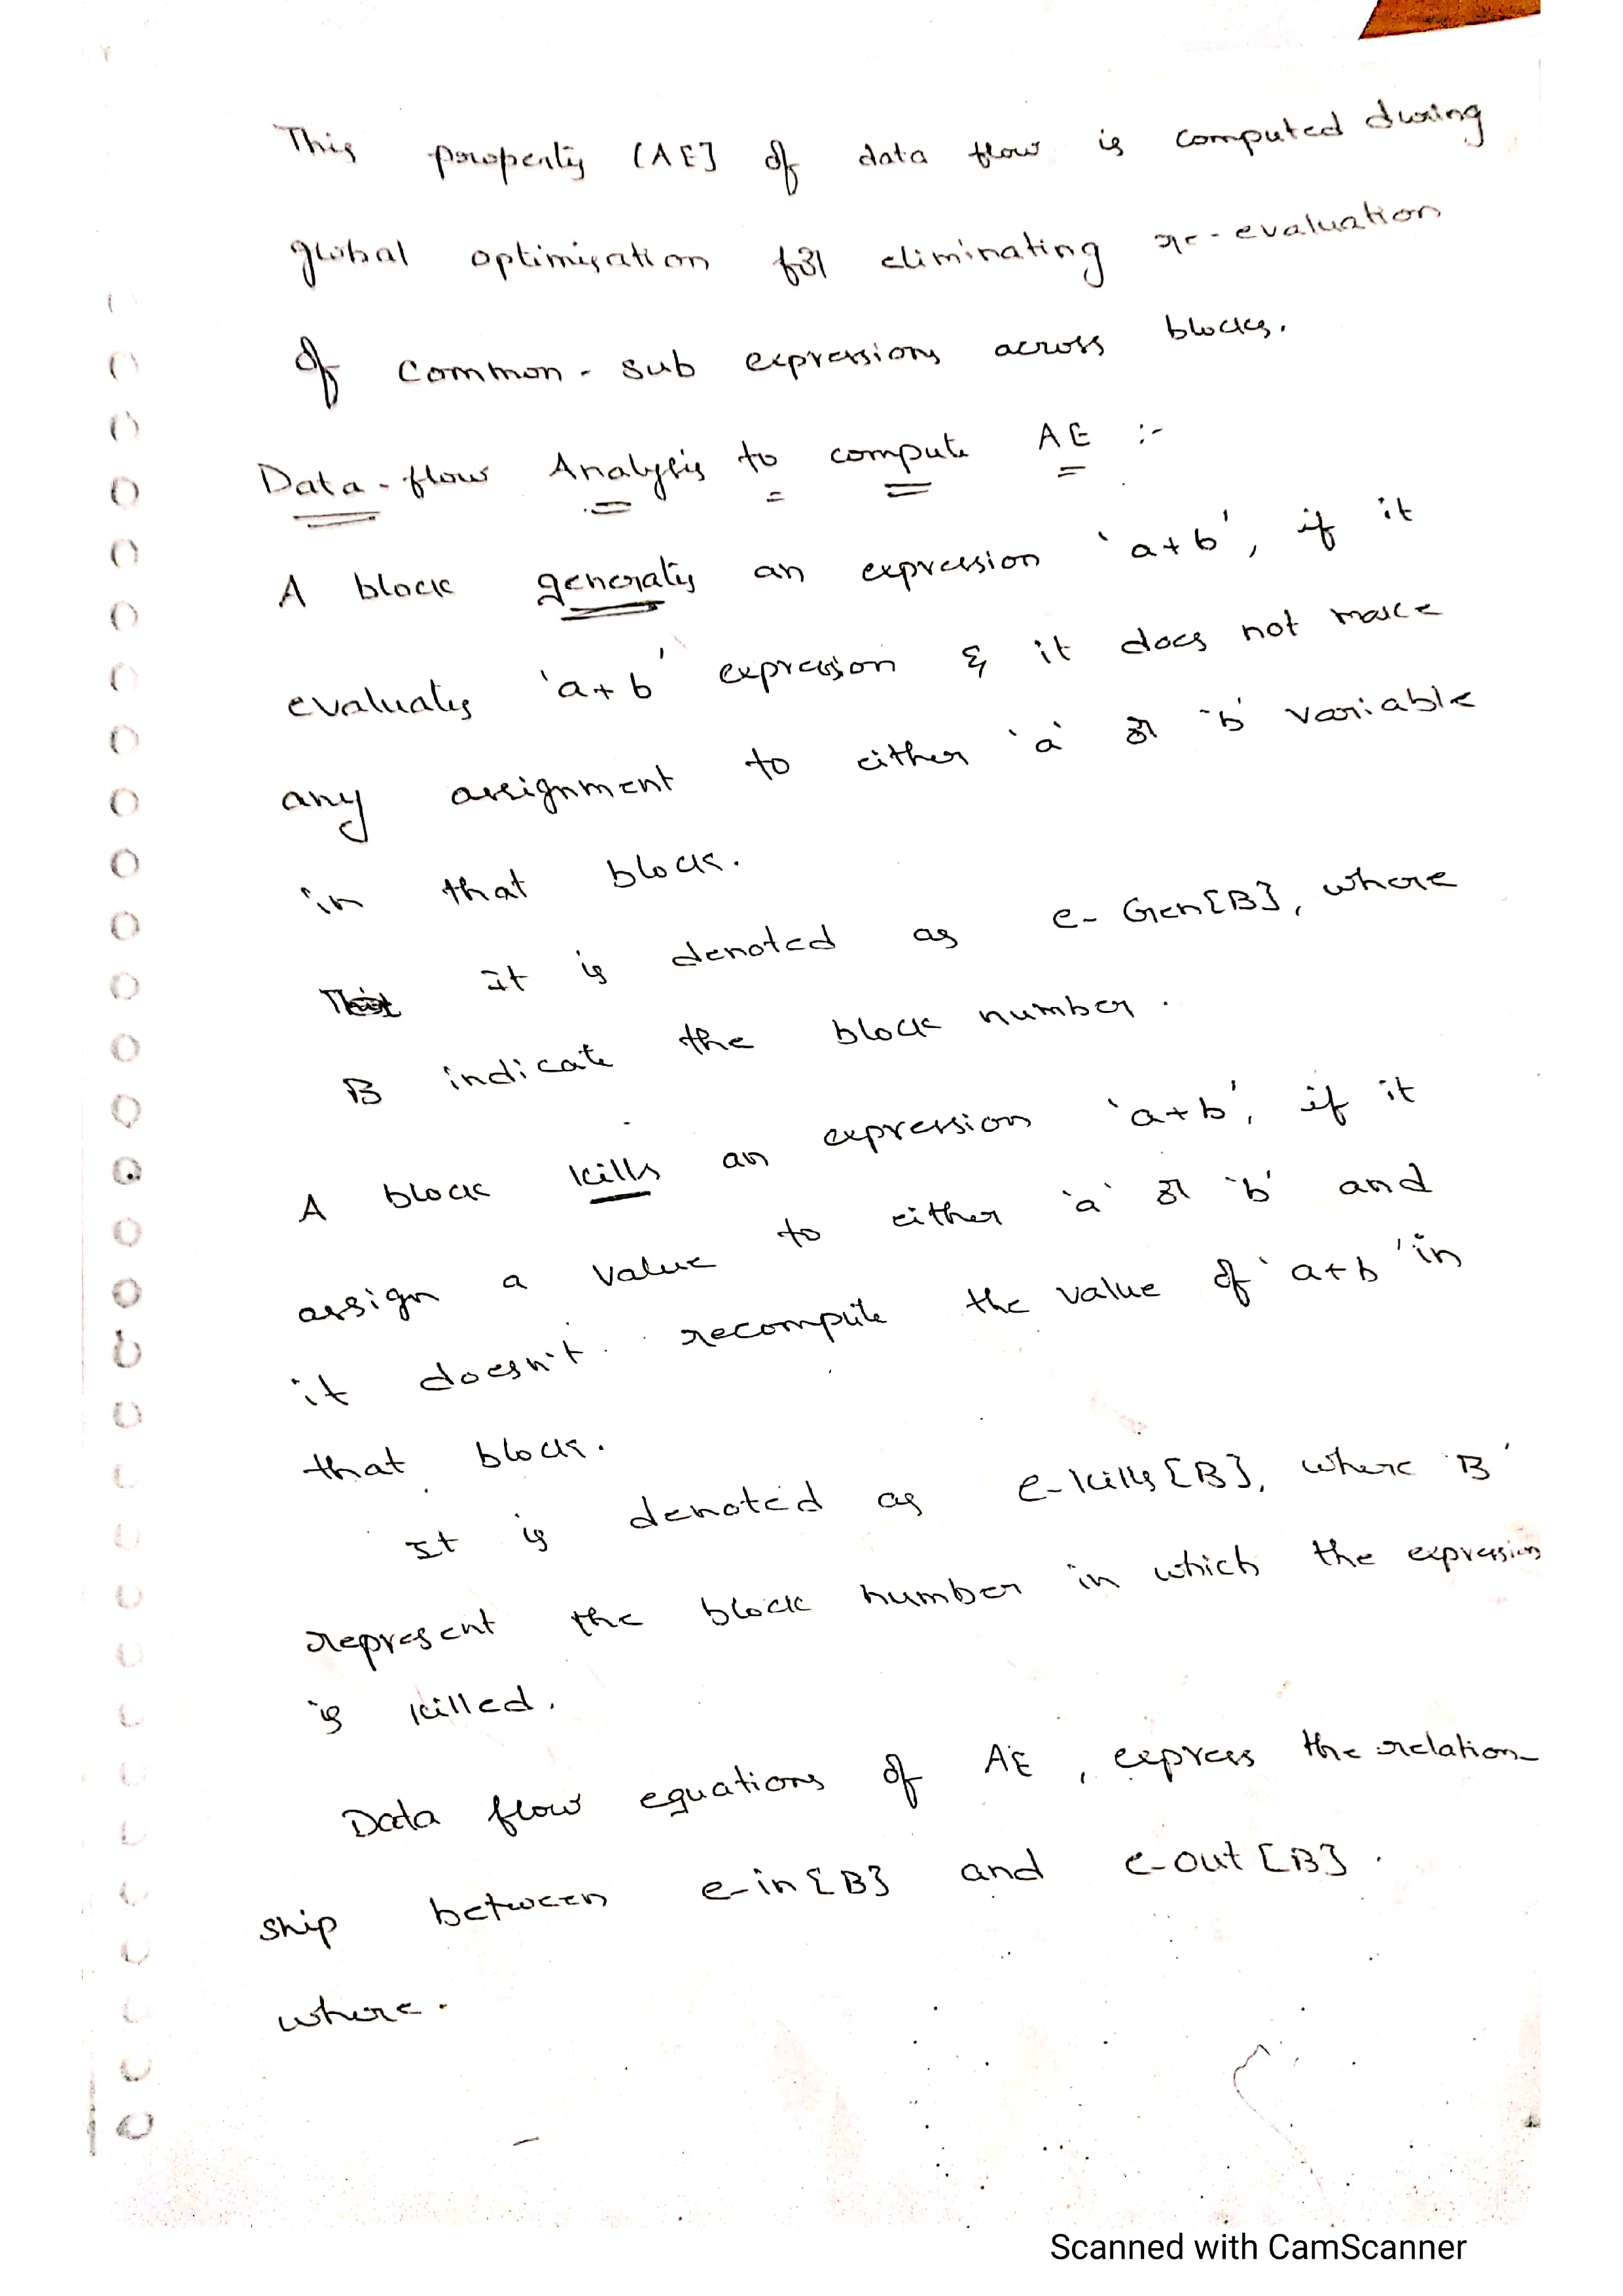 This property [AE] of data flow is computed during
global optimisation for eliminating re-evaluation
of common-sub expressions across blocks.
Data-flow Analysis to compute AE :-
A block generates an expression 'a+b', if it
evaluates 'a+b' expression & it does not make
any assignment to either 'a' or 'b' variable
in that block.
It is denoted as e-Gen[B], where
B indicate the block number.
A block kills an expression 'a+b', if it
assign a value to either 'a' or 'b' and
it doesn't recompute the value of 'a+b' in
that block.
It is denoted as e-kills[B], where 'B'
represent the block number in which the expression
is killed.
Data flow equations of AE, express the relation-
ship between e-in[B] and e-out[B].
where.
Scanned with CamScanner